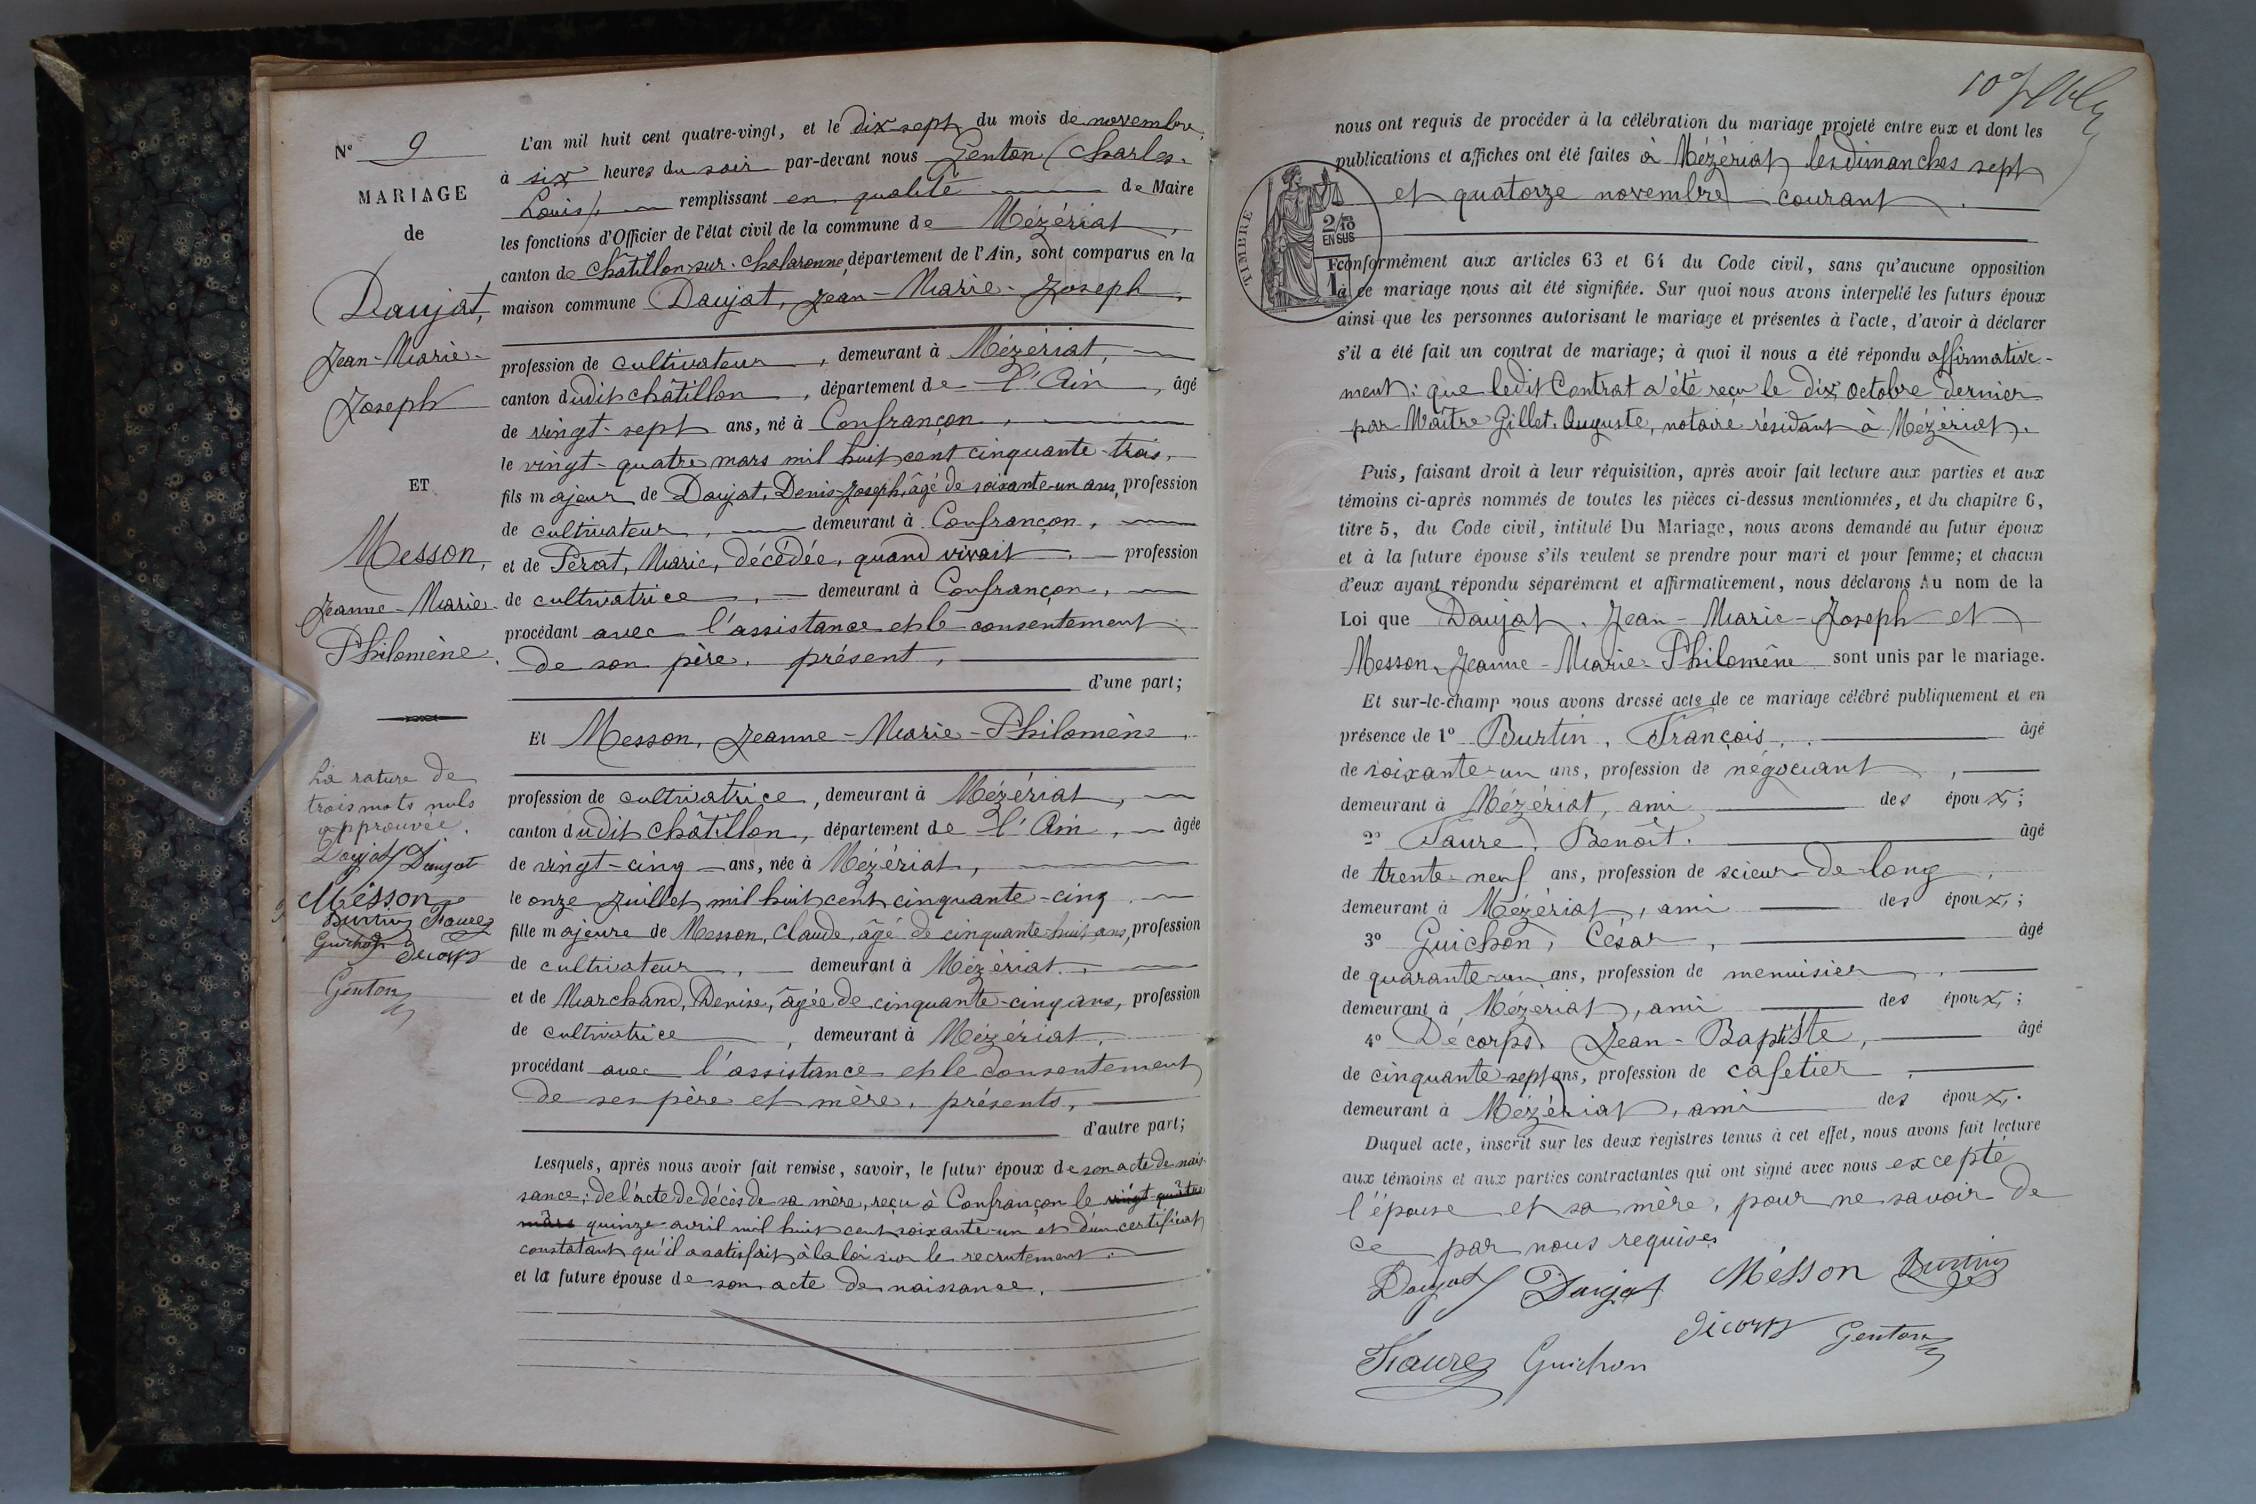 N° 9
MARIAGE
de
Daujat,
Jean-Marie-
Joseph
ET
Messon,
Jeanne-Marie-
Philomène.
La rature de
trois mots nuls
approuvée.
Daujat Daujat
Mésson
Burtin Faure
Guichon Décorps
Genton
L'an mil huit cent quatre-vingt, et le dix-sept du mois de novembre,
à six heures du soir par-devant nous Genton (Charles-
Louis), remplissant en qualité de Maire
les fonctions d'Officier de l'état civil de la commune de Mézériat,
canton de Châtillon-sur-Chalaronne, département de l'Ain, sont comparus en la
maison commune Daujat, Jean-Marie-Joseph,
profession de cultivateur, demeurant à Mézériat,
canton dudit Châtillon, département de l'Ain, âgé
de vingt-sept ans, né à Confrançon,
le vingt-quatre mars mil huit cent cinquante-trois,
fils majeur de Daujat, Denis-Joseph, âgé de soixante-un ans, profession
de cultivateur, demeurant à Confrançon,
et de Pérat, Marie, décédée, quand vivait, profession
de cultivatrice, demeurant à Confrançon,
procédant avec l'assistance et le consentement
de son père, présent,
d'une part;
Et Messon, Jeanne-Marie-Philomène,
profession de cultivatrice, demeurant à Mézériat,
canton dudit Châtillon, département de l'Ain, âgée
de vingt-cinq ans, née à Mézériat,
le onze Juillet mil huit cent cinquante-cinq,
fille majeure de Messon, Claude, âgé de cinquante-huit ans, profession
de cultivateur, demeurant à Mézériat,
et de Marchand, Denise, âgée de cinquante-cinq ans, profession
de cultivatrice, demeurant à Mézériat,
procédant avec l'assistance et le consentement
de ses père et mère, présents,
d'autre part;
Lesquels, après nous avoir fait remise, savoir, le futur époux de son acte de nais-
sance; de l'acte de décès de sa mère, reçu à Confrançon le vingt-quatre
mars quinze avril mil huit cent soixante-un et d'un certificat
constatant qu'il a satisfait à la loi sur le recrutement.
et la future épouse de son acte de naissance.
10
nous ont requis de procéder à la célébration du mariage projeté entre eux et dont les
publications et affiches ont été faites à Mézériat, les dimanches sept
et quatorze novembre courant.
TIMBRE
2/10
EN SUS
1F
conformément aux articles 63 et 64 du Code civil, sans qu'aucune opposition
à ce mariage nous ait été signifiée. Sur quoi nous avons interpellé les futurs époux
ainsi que les personnes autorisant le mariage et présentes à l'acte, d'avoir à déclarer
s'il a été fait un contrat de mariage; à quoi il nous a été répondu affirmative-
ment: que ledit Contrat a été reçu le dix octobre dernier
par Maître Gillet, Auguste, notaire résidant à Mézériat.
Puis, faisant droit à leur réquisition, après avoir fait lecture aux parties et aux
témoins ci-après nommés de toutes les pièces ci-dessus mentionnées, et du chapitre 6,
titre 5, du Code civil, intitulé Du Mariage, nous avons demandé au futur époux
et à la future épouse s'ils veulent se prendre pour mari et pour femme; et chacun
d'eux ayant répondu séparément et affirmativement, nous déclarons Au nom de la
Loi que Daujat, Jean-Marie-Joseph et
Messon, Jeanne-Marie-Philomène sont unis par le mariage.
Et sur-le-champ nous avons dressé acte de ce mariage célébré publiquement et en
présence de 1° Burtin, François, âgé
de soixante-un ans, profession de négociant,
demeurant à Mézériat, ami des époux;
2° Faure, Benoît, âgé
de trente-neuf ans, profession de scieur de long,
demeurant à Mézériat, ami des époux;
3° Guichon, César, âgé
de quarante-un ans, profession de menuisier,
demeurant à Mézériat, ami des époux;
4° Décorps, Jean-Baptiste, âgé
de cinquante-sept ans, profession de cafetier,
demeurant à Mézériat, ami des époux.
Duquel acte, inscrit sur les deux registres tenus à cet effet, nous avons fait lecture
aux témoins et aux parties contractantes qui ont signé avec nous excepté
l'épouse et sa mère, pour ne savoir de
ce par nous requises
Daujat Daujat Mésson Burtin
Décorps Genton
Faure Guichon